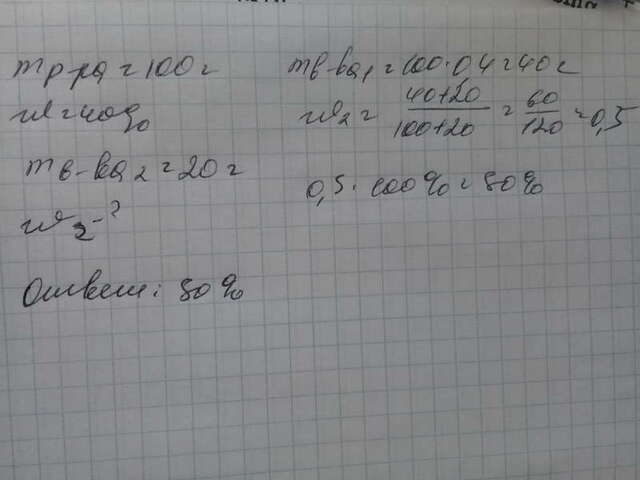 m р-ра = 100 г
w = 40%
m в-ва 2 = 20 г
w2 - ?
Ответ: 50%
m в-ва1 = 100 · 0,4 = 40 г
w2 = 40+20 / 100+20 = 60 / 120 = 0,5
0,5 · 100% = 50%